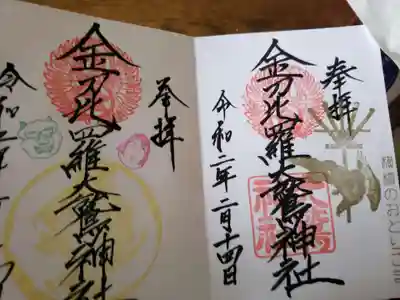 奉拝
金刀比羅大鷲神社
令和二年二月十四日
奉拝
金刀比羅大鷲神社
令和二年